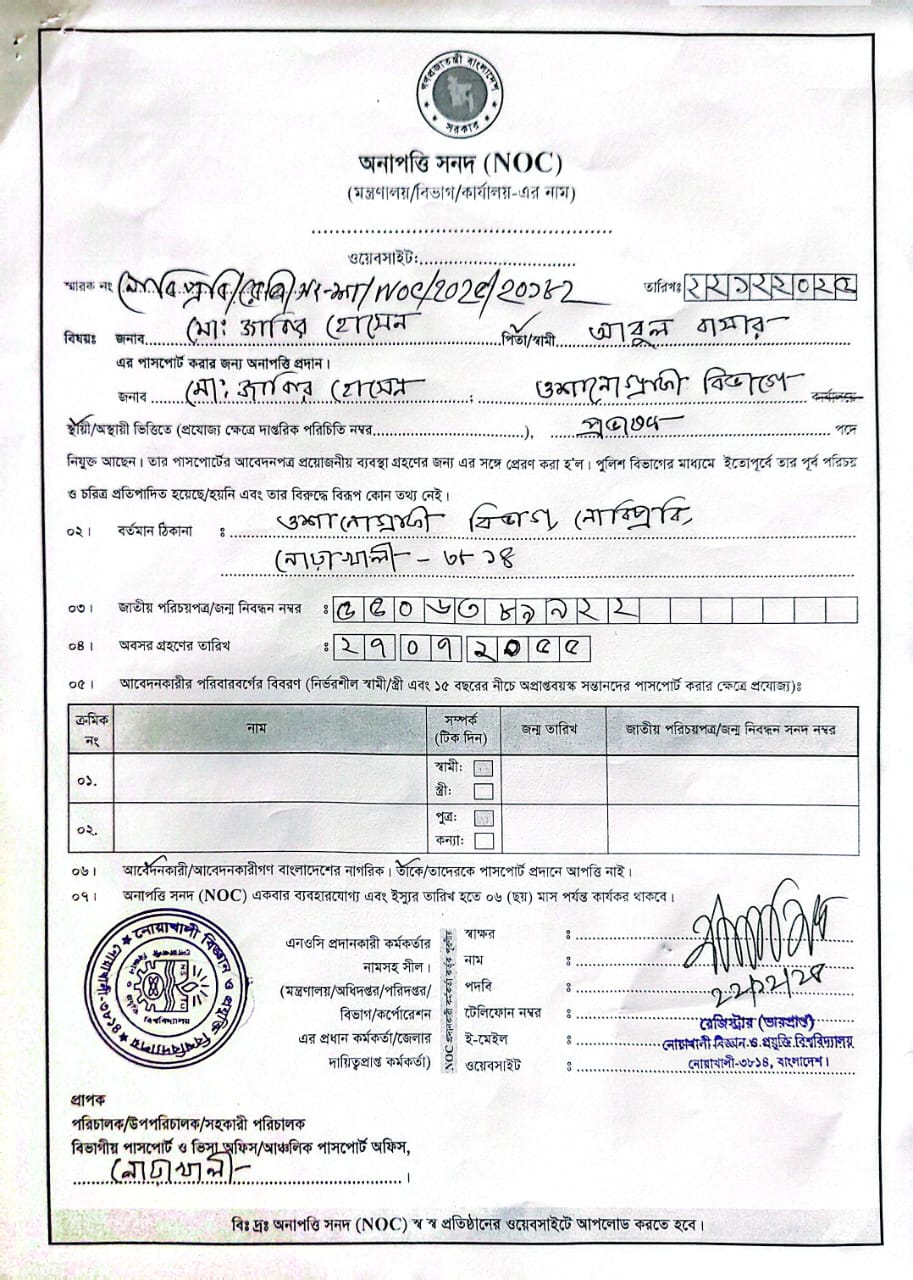 গণপ্রজাতন্ত্রী বাংলাদেশ
সরকার
অনাপত্তি সনদ (NOC)
(মন্ত্রণালয়/বিভাগ/কার্যালয়-এর নাম)
ওয়েবসাইট:
স্মারক নং নোবিপ্রবি/রেজি/সং-শা/NOC/2025/২০১৪২ তারিখঃ ২২১২২০২৫
বিষয়ঃ জনাব মো: জাকির হোসেন পিতা/স্বামী আবুল বাসার
এর পাসপোর্ট করার জন্য অনাপত্তি প্রদান।
জনাব মো: জাকির হোসেন ; ওশানোগ্রাফী বিভাগে কার্যালয়ে
স্থায়ী/অস্থায়ী ভিত্তিতে (প্রযোজ্য ক্ষেত্রে দাপ্তরিক পরিচিতি নম্বর), প্রভাষক পদে
নিযুক্ত আছেন। তার পাসপোর্টের আবেদনপত্র প্রয়োজনীয় ব্যবস্থা গ্রহণের জন্য এর সঙ্গে প্রেরণ করা হ'ল। পুলিশ বিভাগের মাধ্যমে ইতোপূর্বে তার পূর্ব পরিচয়
ও চরিত্র প্রতিপাদিত হয়েছে/হয়নি এবং তার বিরুদ্ধে বিরূপ কোন তথ্য নেই।
০২। বর্তমান ঠিকানা ঃ ওশানোগ্রাফী বিভাগ, নোবিপ্রবি,
নোয়াখালী - ৩৮১৪
০৩। জাতীয় পরিচয়পত্র/জন্ম নিবন্ধন নম্বর ঃ ৫৫০৬৩৮৯৭২২
০৪। অবসর গ্রহণের তারিখ ঃ ২৭০৭২০৫৫
০৫। আবেদনকারীর পরিবারবর্গের বিবরণ (নির্ভরশীল স্বামী/স্ত্রী এবং ১৫ বছরের নীচে অপ্রাপ্তবয়স্ক সন্তানদের পাসপোর্ট করার ক্ষেত্রে প্রযোজ্য)ঃ
ক্রমিক নং নাম সম্পর্ক (টিক দিন) জন্ম তারিখ জাতীয় পরিচয়পত্র/জন্ম নিবন্ধন সনদ নম্বর
০১. স্বামী:
স্ত্রী:
০২. পুত্র:
কন্যা:
০৬। আবেদনকারী/আবেদনকারীগণ বাংলাদেশের নাগরিক। তাঁকে/তাদেরকে পাসপোর্ট প্রদানে আপত্তি নাই।
০৭। অনাপত্তি সনদ (NOC) একবার ব্যবহারযোগ্য এবং ইস্যুর তারিখ হতে ০৬ (ছয়) মাস পর্যন্ত কার্যকর থাকবে।
নোয়াখালী বিজ্ঞান ও প্রযুক্তি বিশ্ববিদ্যালয়
নোয়াখালী-৩৮১৪
এনওসি প্রদানকারী কর্মকর্তার
নামসহ সীল।
(মন্ত্রণালয়/অধিদপ্তর/পরিদপ্তর/
বিভাগ/কর্পোরেশন
এর প্রধান কর্মকর্তা/জেলার
দায়িত্বপ্রাপ্ত কর্মকর্তা)
NOC প্রদানকারী কর্মকর্তা কর্তৃক পূরণীয়
স্বাক্ষর ঃ
নাম ঃ
পদবি ঃ
টেলিফোন নম্বর ঃ
ই-মেইল ঃ
ওয়েবসাইট ঃ
রেজিস্ট্রার (ভারপ্রাপ্ত)
নোয়াখালী বিজ্ঞান ও প্রযুক্তি বিশ্ববিদ্যালয়
নোয়াখালী-৩৮১৪, বাংলাদেশ।
প্রাপক
পরিচালক/উপপরিচালক/সহকারী পরিচালক
বিভাগীয় পাসপোর্ট ও ভিসা অফিস/আঞ্চলিক পাসপোর্ট অফিস,
নোয়াখালী।
বিঃ দ্রঃ অনাপত্তি সনদ (NOC) স্ব স্ব প্রতিষ্ঠানের ওয়েবসাইটে আপলোড করতে হবে।